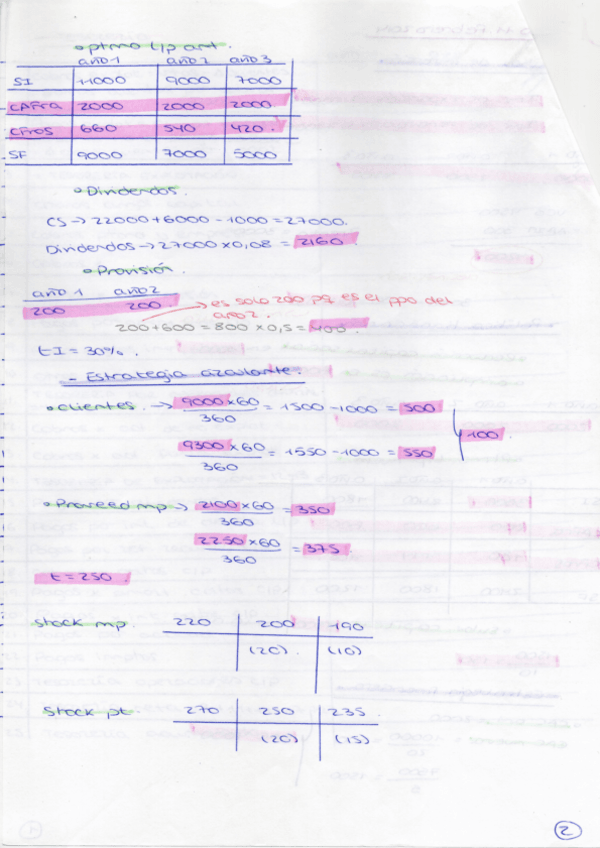 ptmo L/p ant.
año 1 año 2 año 3
SI 11000 9000 7000
CAfra 2000 2000 2000
Cfros 660 540 420.
SF 9000 7000 5000
Dividendos.
CS → 22000 + 6000 - 1000 = 27000.
Dividendos → 27000 x 0,08 = 2160
Provisión.
año 1 año 2
200 200
→ es solo 200 pq es el ppo del
año 2.
200 + 600 = 800 x 0,5 = 400.
tI = 30%.
- Estrategia circulante.
clientes. → 9000 x 60 / 360 = 1500 - 1000 = 500
100.
9300 x 60 / 360 = 1550 - 1000 = 550
Proveed mp → 2100 x 60 / 360 = 350
2250 x 60 / 360 = 375
t = 250.
Stock mp. 220 200 190
(20). (10)
Stock pt. 270 250 235.
(20) (15)
2